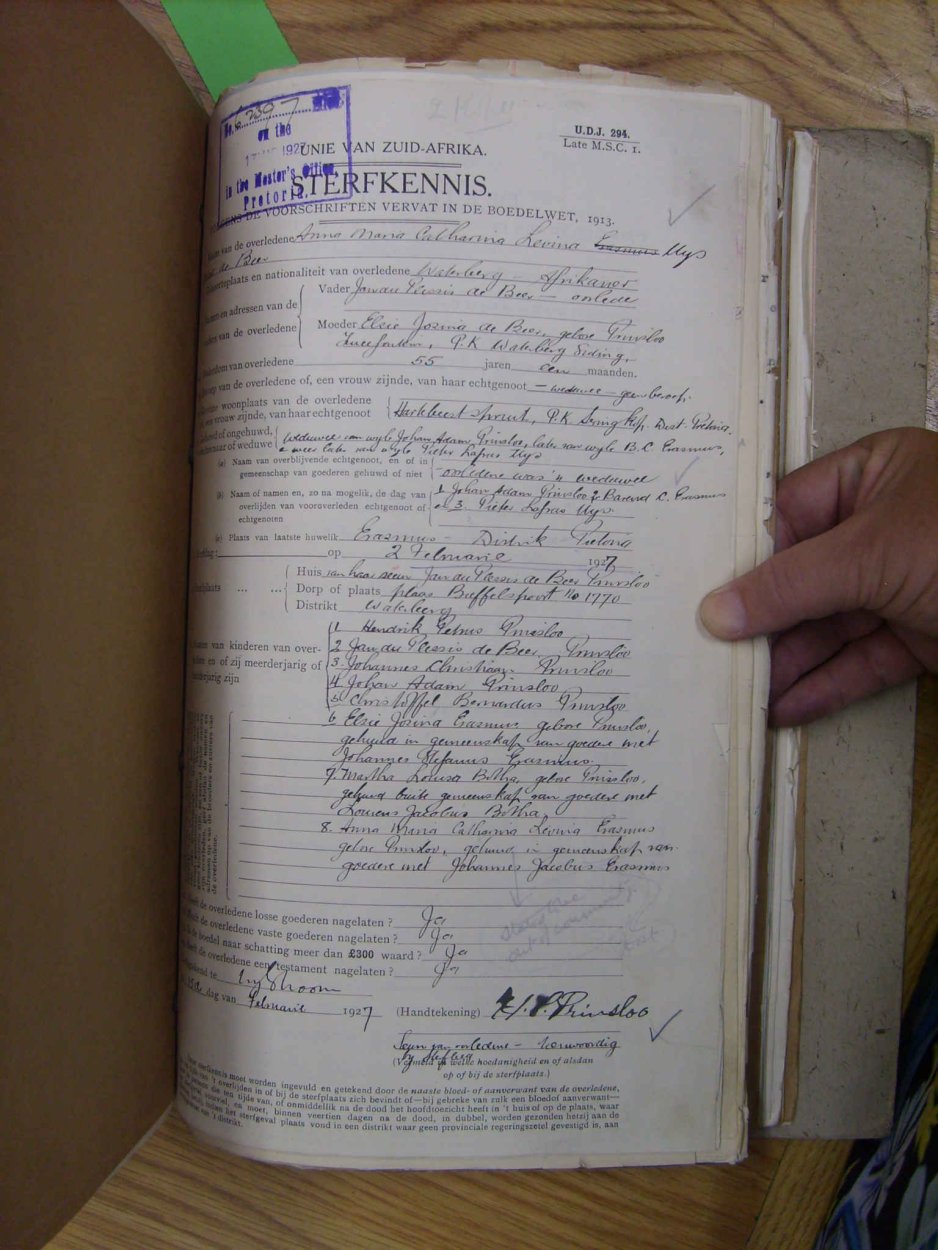 U.D.J. 294.
Late M.S.C. 1.
No. 6230/7
on the
1927
in the Master's Office,
Pretoria.
UNIE VAN ZUID-AFRIKA.
STERFKENNIS.
DE VOORSCHRIFTEN VERVAT IN DE BOEDELWET, 1913.
van de overledene Anna Maria Catharina Levina Erasmus Uys
de Beer
en nationaliteit van overledene Waterberg — Afrikaner
en adressen van de
van de overledene
Vader Jan du Plessis de Beer — overlede
Moeder Elsie Josina de Beer, gebore Prinsloo
P.K. Waterberg Siding,
van overledene 55 jaren een maanden.
van de overledene of, een vrouw zijnde, van haar echtgenoot — weduwee — geen beroep.
woonplaats van de overledene
vrouw zijnde, van haar echtgenoot
Hartebeest spruit, P.K. Dist. Pretoria.
of ongehuwd,
of weduwe
weduwee van wyle Johan Adam Prinsloo, later van wyle B.C. Erasmus,
later van wyle Pieter Lafras Uys
(a) Naam van overblijvende echtgenoot, en of in
gemeenschap van goederen gehuwd of niet
overledene was 'n weduwee
(b) Naam of namen en, zo na mogelik, de dag van
overlijden van vooroverleden echtgenoot of
echtgenoten
1. Johan Adam Prinsloo 2. Barend C. Erasmus
en 3. Pieter Lafras Uys
(c) Plaats van laatste huwelik Erasmus — Distrik Pretoria
op 2 Februarie 1927
Huis van haar seun Jan du Plessis de Beer Prinsloo
Dorp of plaats plaas Buffelspoort No 1770
Distrikt Waterberg
van kinderen van over-
en of zij meerderjarig of
zijn
1 Hendrik Petrus Prinsloo
2 Jan du Plessis de Beer Prinsloo
3 Johannes Christiaan Prinsloo
4 Johan Adam Prinsloo
5 Christoffel Bernardus Prinsloo
6. Elsie Josina Erasmus gebore Prinsloo,
gehuud in gemeenskap van goedere met
Johannes Stefanus Erasmus
7. Martha Louisa Botha, gebore Prinsloo,
gehuud buite gemeenskap van goedere met
Lourens Jacobus Botha
8. Anna Maria Catharina Levina Erasmus
gebore Prinsloo, gehuud in gemeenskap van
goedere met Johannes Jacobus Erasmus
de overledene losse goederen nagelaten? Ja
de overledene vaste goederen nagelaten? Ja
boedel naar schatting meer dan £300 waard? Ja
de overledene een testament nagelaten? Ja
te Nylstroom
dag van Februarie 1927 (Handtekening) H. P. Prinsloo
Seun van overledene — teenwoordig
by sterfbed
(Vermeld in welke hoedanigheid en of alsdan
op of bij de sterfplaats.)
sterfkennis moet worden ingevuld en getekend door de naaste bloed- of aanverwant van de overledene,
't overlijden in of bij de sterfplaats zich bevindt of—bij gebreke van zulk een bloedof aanverwant—
persoon die ten tijde van, of onmiddellik na de dood het hoofdtoezicht heeft in 't huis of op de plaats, waar
en moet, binnen veertien dagen na de dood, in dubbel, worden gezonden hetzij aan de
indien het sterfgeval plaats vond in een distrikt waar geen provinciale regeringszetel gevestigd is, aan
't distrikt.